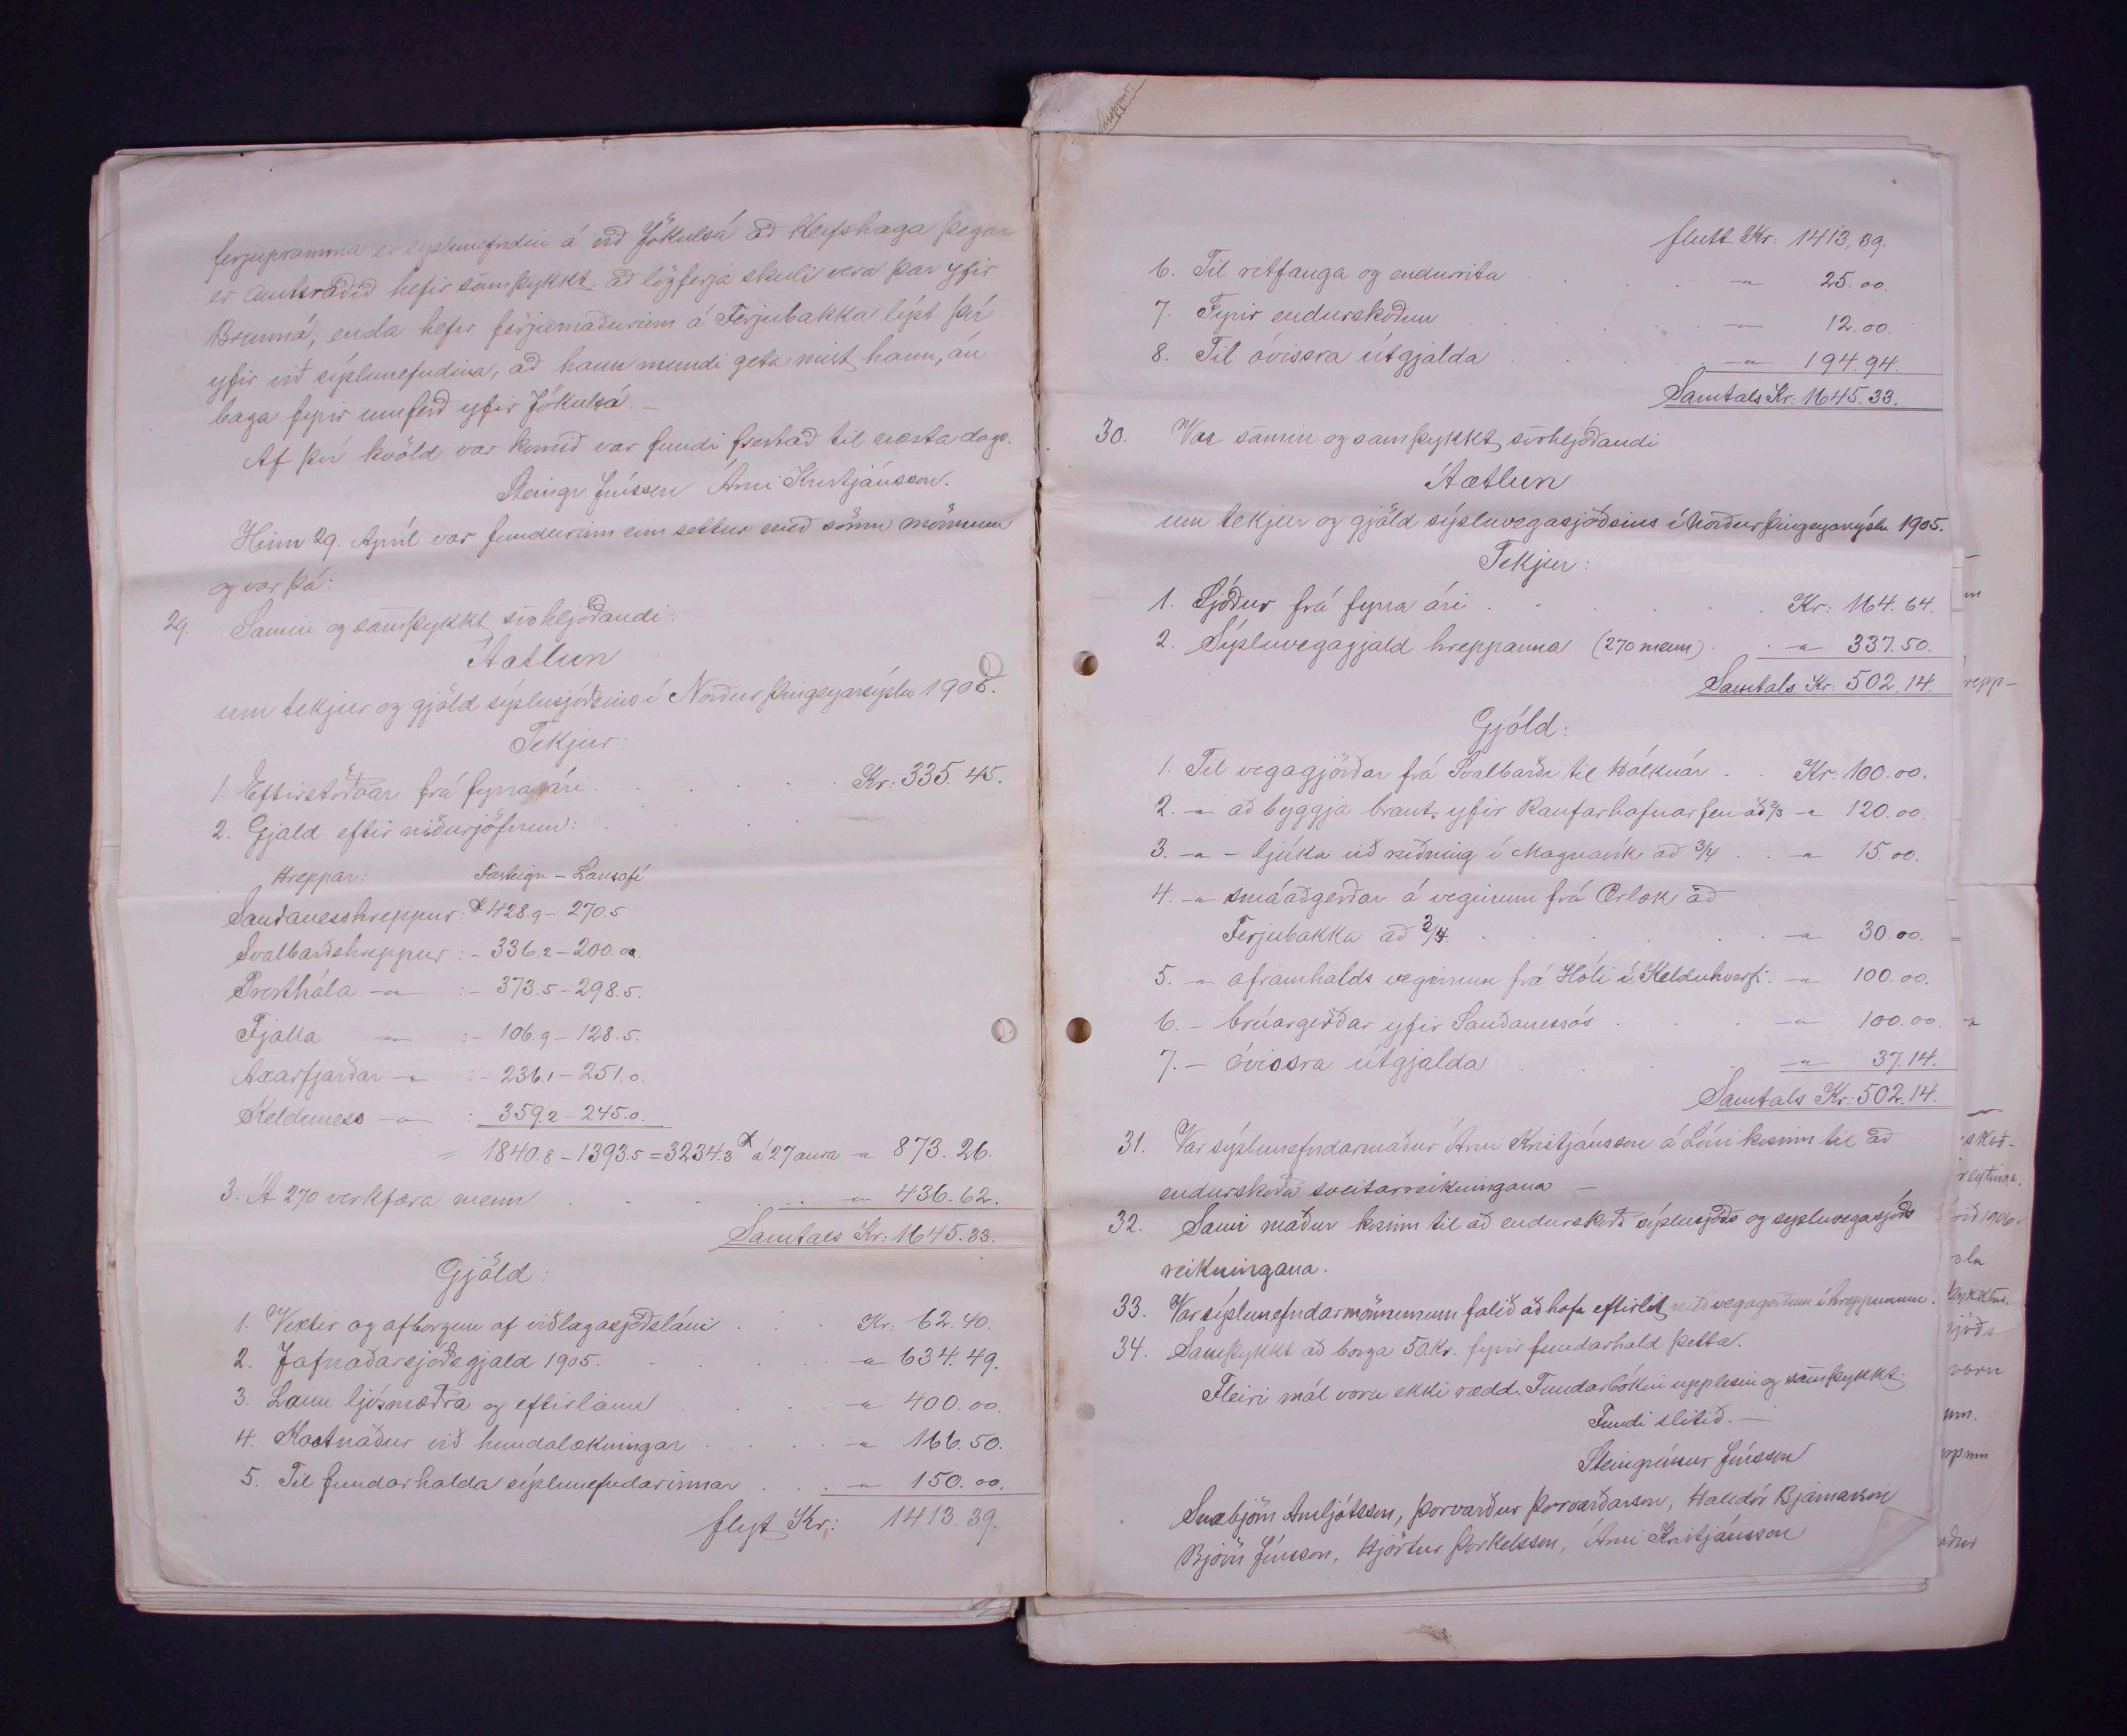 ferjupramma er sýslunefndin á við Jökulsá að Keifshaga þegar
er amtsráðið hefir samþykkt að lögferja skuli vera þar yfir
Brunná, enda hefir ferjumaðurinn á Ferjubakka lýst því
yfir við sýslunefndina, að hann mundi geta mist hann, án
baga fyrir umferð yfir Jökulsá. —
Af því kvöld var komið var fundi frestað til næsta dags.
Steingr. Jónsson Árni Kristjánsson.
Hinn 29. Apríl var fundurinn settur með sömu mönnum
og var þá:
29. Samin og samþykkt svohljóðandi:
Áætlun
um tekjur og gjöld sýslusjóðsins í Norður Þingeyarsýslu 1905.
Tekjur:
1. Eftirstöðvar frá fyrra ári . . . . . Kr: 335.45.
2. Gjald eftir niðurjöfnun: . . . .
Hreppar: Fasteign – Lausafé
Sauðanesshreppur: 428.9 – 270.5
Svalbarðshreppur: - 336.2 – 200.00.
Presthóla —"— :- 373.5 – 298.5.
Fjalla —"— :- 106.9 – 128.5.
Axarfjarðar —"— :- 236.1 – 251.0.
Kelduness —"— : 359.2 – 245.0.
= 1840.8 – 1393.5 = 3234.3 á 27 aura —"— 873.26.
3. Á 270 verkfæra menn . . . —"— 436.62.
Samtals Kr: 1645.33.
Gjöld:
1. Vextir og afborgun af viðlagasjóðsláni . . . Kr: 62.40.
2. Jafnaðarsjóðsgjald 1905. . . . . —"— 634.49.
3. Laun ljósmæðra og eftirlaun . . . . —"— 400.00.
4. Kostnaður við hundalækningar . . . . —"— 166.50.
5. Til fundarhalda sýslunefndarinnar . . . —"— 150.00.
flyt Kr: 1413.39.
flutt Kr: 1413,39.
6. Til ritfanga og endurrita . . . —"— 25.00.
7. Fyrir endurskoðun . . . . —"— 12.00.
8. Til óvissra útgjalda . . . . —"— 194.94.
Samtals Kr: 1645.33.
30. Var samin og samþykkt svohljóðandi
Áætlun
um tekjur og gjöld sýsluvegasjóðsins í Norður Þingeyarsýslu 1905.
Tekjur:
1. Sjóður frá fyrra ári . . . . . Kr: 164.64.
2. Sýsluvegagjald hreppanna (270 menn) . . —"— 337.50.
Samtals Kr: 502.14.
Gjöld:
1. Til vegagjörðar frá Svalbarði til Hólknár . . Kr: 100.00.
2. —"— að byggja braut yfir Raufarhafnarfen að 2/3 —"— 120.00.
3. —"— – ljúka við ruðning í Magnavík að 3/4 . . —"— 15.00.
4. —"— smáaðgerðar á veginum frá Ærlæk að
Ferjubakka að 3/4. . . . . . —"— 30.00.
5. —"— áframhalds veginum frá Hóli í Kelduhverfi. —"— 100.00.
6. – brúargerðar yfir Sauðanessós . . . —"— 100.00.
7. – óvissra útgjalda . . . . —"— 37.14.
Samtals Kr: 502.14.
31. Var sýslunefndarmaður Árni Kristjánsson á Lóni kosinn til að
endurskoða sveitarreikningana —
32. Sami maður kosinn til að endurskoða sýslusjóðs og sýsluvegasjóðs
reikningana.
33. Var sýslunefndarmönnunum falið að hafa eftirlit með vegagerðum í hreppunum.
34. Samþykkt að borga 50 Kr. fyrir fundarhald þetta.
Fleiri mál voru ekki rædd. Fundarbókin upplesin og samþykkt.
Fundi slitið. —
Steingrímur Jónsson
Snæbjörn Arnljótsson, Þorvarður Þorvarðarson, Halldór Bjarnarson
Björn Jónsson, Hjörtur Þorkelsson, Árni Kristjánsson